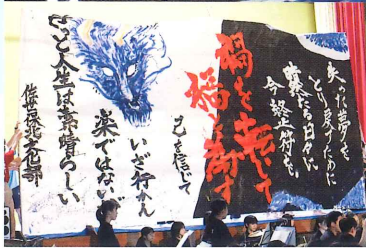 失った夢を
とり戻すために
藻たる日々に
今終止符を。
禍を転じて
福と為す
己を信じて
いざ行かん
楽ではない
きっと人生は素晴らしい